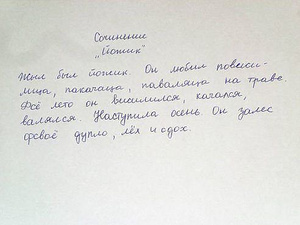 Сочинение
"Йожик"
Жыл был йожик. Он любил повесили-
мица, пакачаца, паваляца на траве.
Фсё лето он виселился, качался,
валялся. Наступила осень. Он залес
фсваё дупло, лёх и сдох.